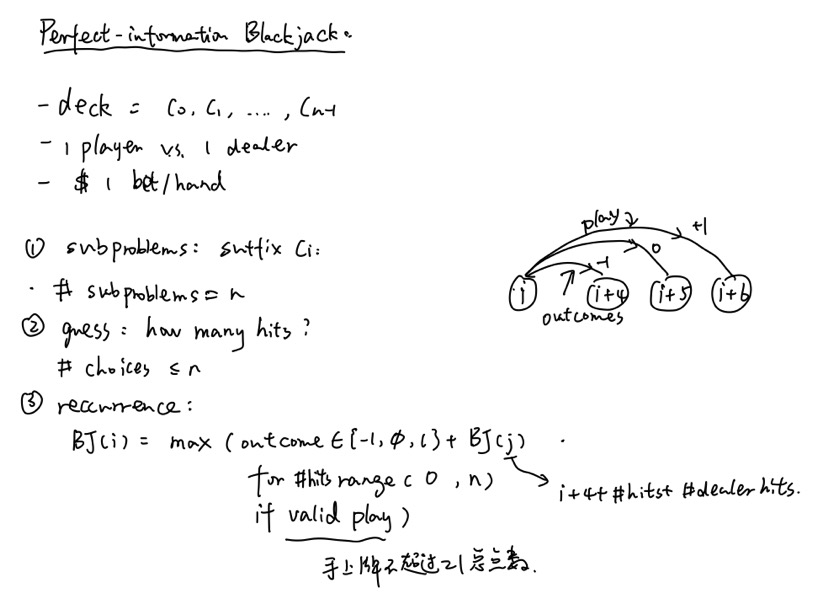 Perfect-information Blackjack.
- deck = C0, C1, ...., Cn-1
- 1 player vs. 1 dealer
- $ 1 bet/hand
① subproblems: suffix Ci:
· # subproblems = n
② guess: how many hits?
# choices ≤ n
③ recurrence:
BJ(i) = max (outcome ∈ {-1, 0, 1} + BJ(j)
for #hits range ( 0 , n)
if valid play )
手上牌不超过21总点数.
i+4+ #hits+ #dealer hits.
play
+1
0
-1
i
i+4
i+5
i+6
outcomes